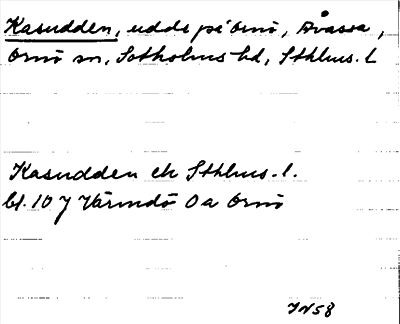 Kasudden, udde på Ornö, Åvassa,
Ornö sn, Sotholms hd, Sthlms. l
Kasudden ek Sthlms. l.
bl. 10 J Värmdö Oa Ornö
JN58